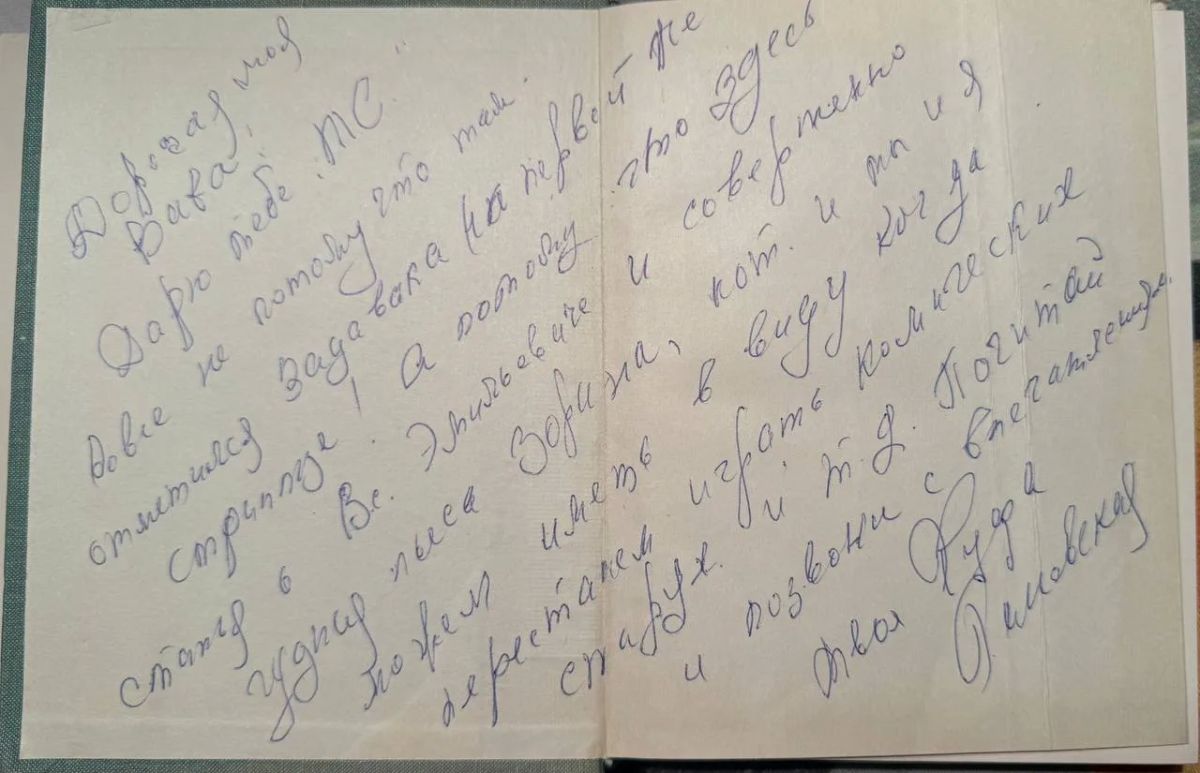 Дорогая моя
Вава!
Дарю тебе "ТС"
вовсе не потому что там
отметился Задавака (на первой же
странице! А потому что здесь
статья о Вс. Эмильевиче и совершенно
чудная пьеса Зорина, кот. и ты и я
можем иметь в виду когда
перестанем играть комических
старух. и т.д. Почитай
и позвони с впечатлением.
твоя Руфа